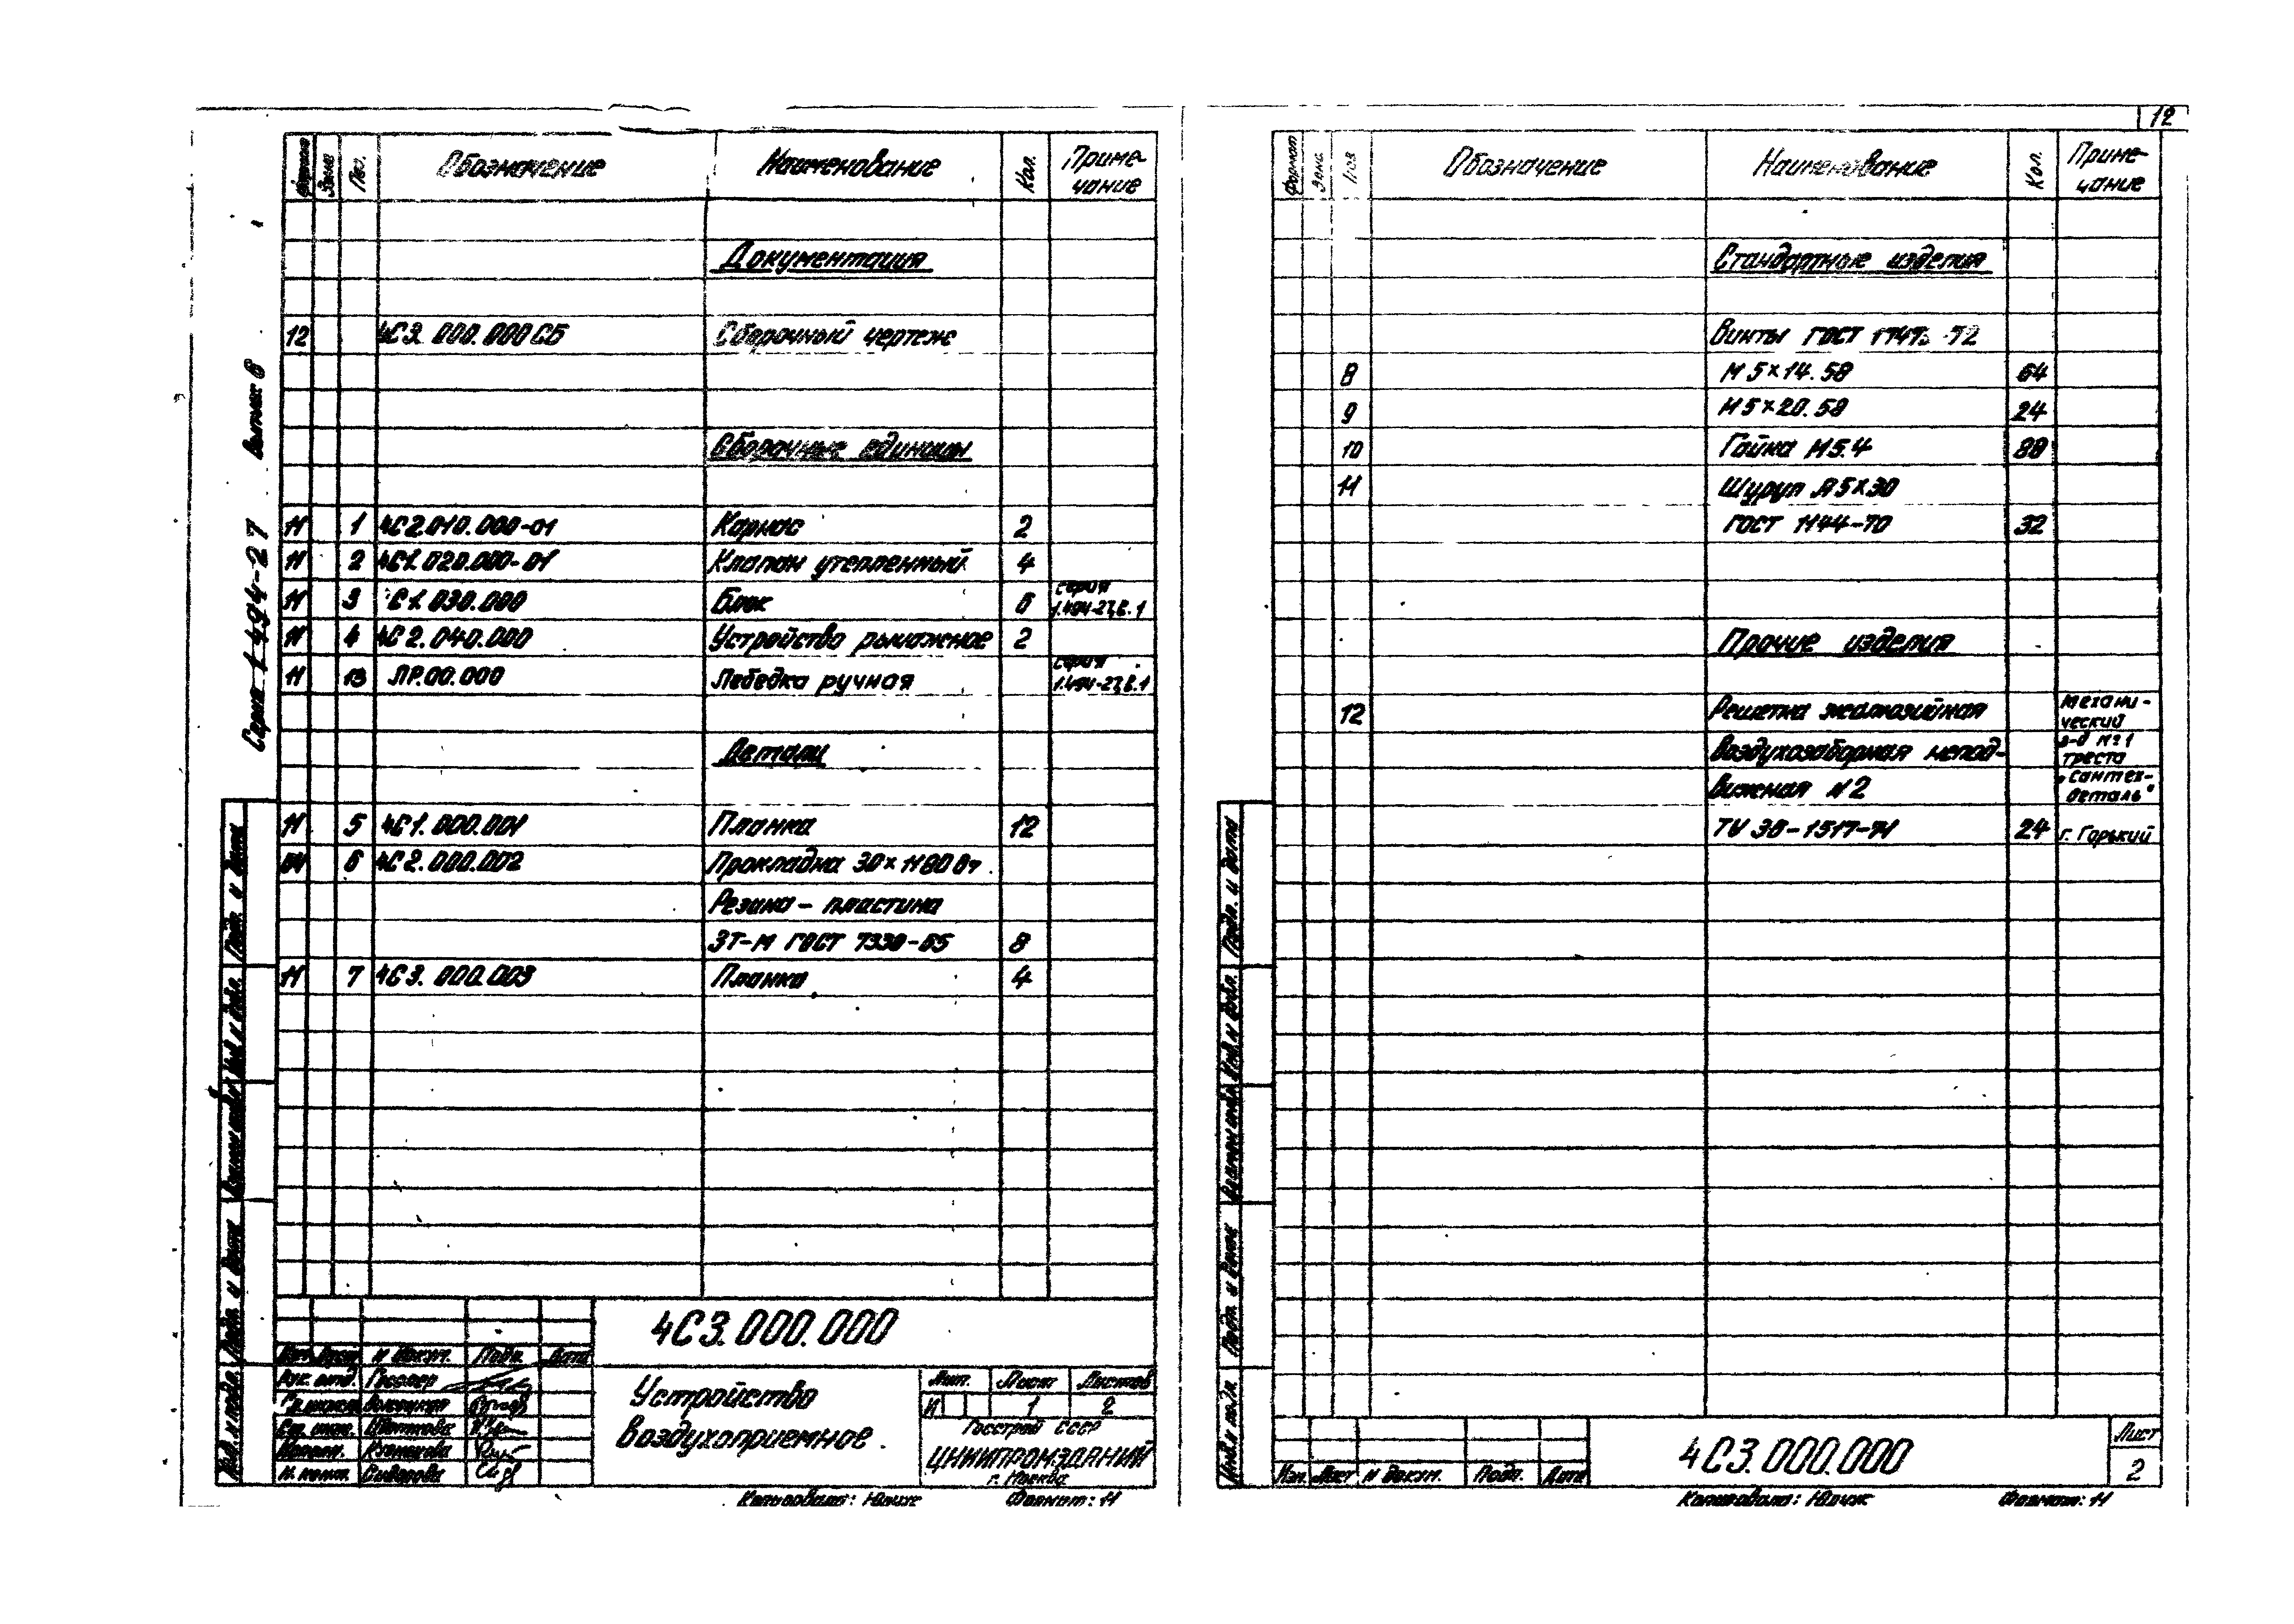 12
Серия 1.494-27 выпуск 6
Формат Зона Поз. Обозначение Наименование Кол. Приме-
чание
Документация
12 4С3.000.000СБ Сборочный чертеж
Сборочные единицы
11 1 4С2.010.000-01 Каркас 2
11 2 4С1.020.000-01 Клапан утепленный 4
11 3 С1.030.000 Блок 6 серия
1.494-27, в.1
11 4 4С2.040.000 Устройство рычажное 2
11 13 ЛР.00.000 Лебедка ручная серия
1.494-27, в.1
Детали
11 5 4С1.000.001 Планка 12
БЧ 6 4С2.000.002 Прокладка 30×1180
Резина - пластина
3Т-М ГОСТ 7338-65 8
11 7 4С3.000.003 Планка 4
4С3.000.000
Изм. Лист N докум. Подп. Дата
Рук. отд.
Устройство
воздухоприемное
Лит. Лист Листов
И 1 2
Госстрой СССР
ЦНИИПРОМЗДАНИЙ
г. Москва
Ст. инж.
Кузнецова
Н. конт. Сидорова
Копировала: Юдиж Формат: 11
Инв.N подл. Подп. и дата Взамен инв.N Инв.N дубл. Подп. и дата
Формат Зона Поз Обозначение Наименование Кол. Приме-
чание
Стандартные изделия
Винты ГОСТ 17473-72
8 М5×14.58 64
9 М5×20.58 24
10 Гайка М5.4 88
11 Шуруп А5×30
ГОСТ 1144-70 32
Прочие изделия
12 Решетка жалюзийная
воздухозаборная непод-
вижная N2
ТУ 36-1517-71 24
Механи-
ческий
з-д №1
треста
"Сантех-
деталь"
г. Горький
4С3.000.000
Изм. Лист N докум. Подп. Дата
Лист
2
Копировала: Юдиж Формат: 11
Инв.N подл. Подп. и дата Взамен инв.N Инв.N дубл. Подп. и дата